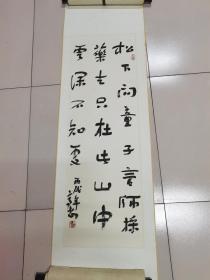 松下问童子言师採
藥去只在此山中
雲深不知处
丙戌